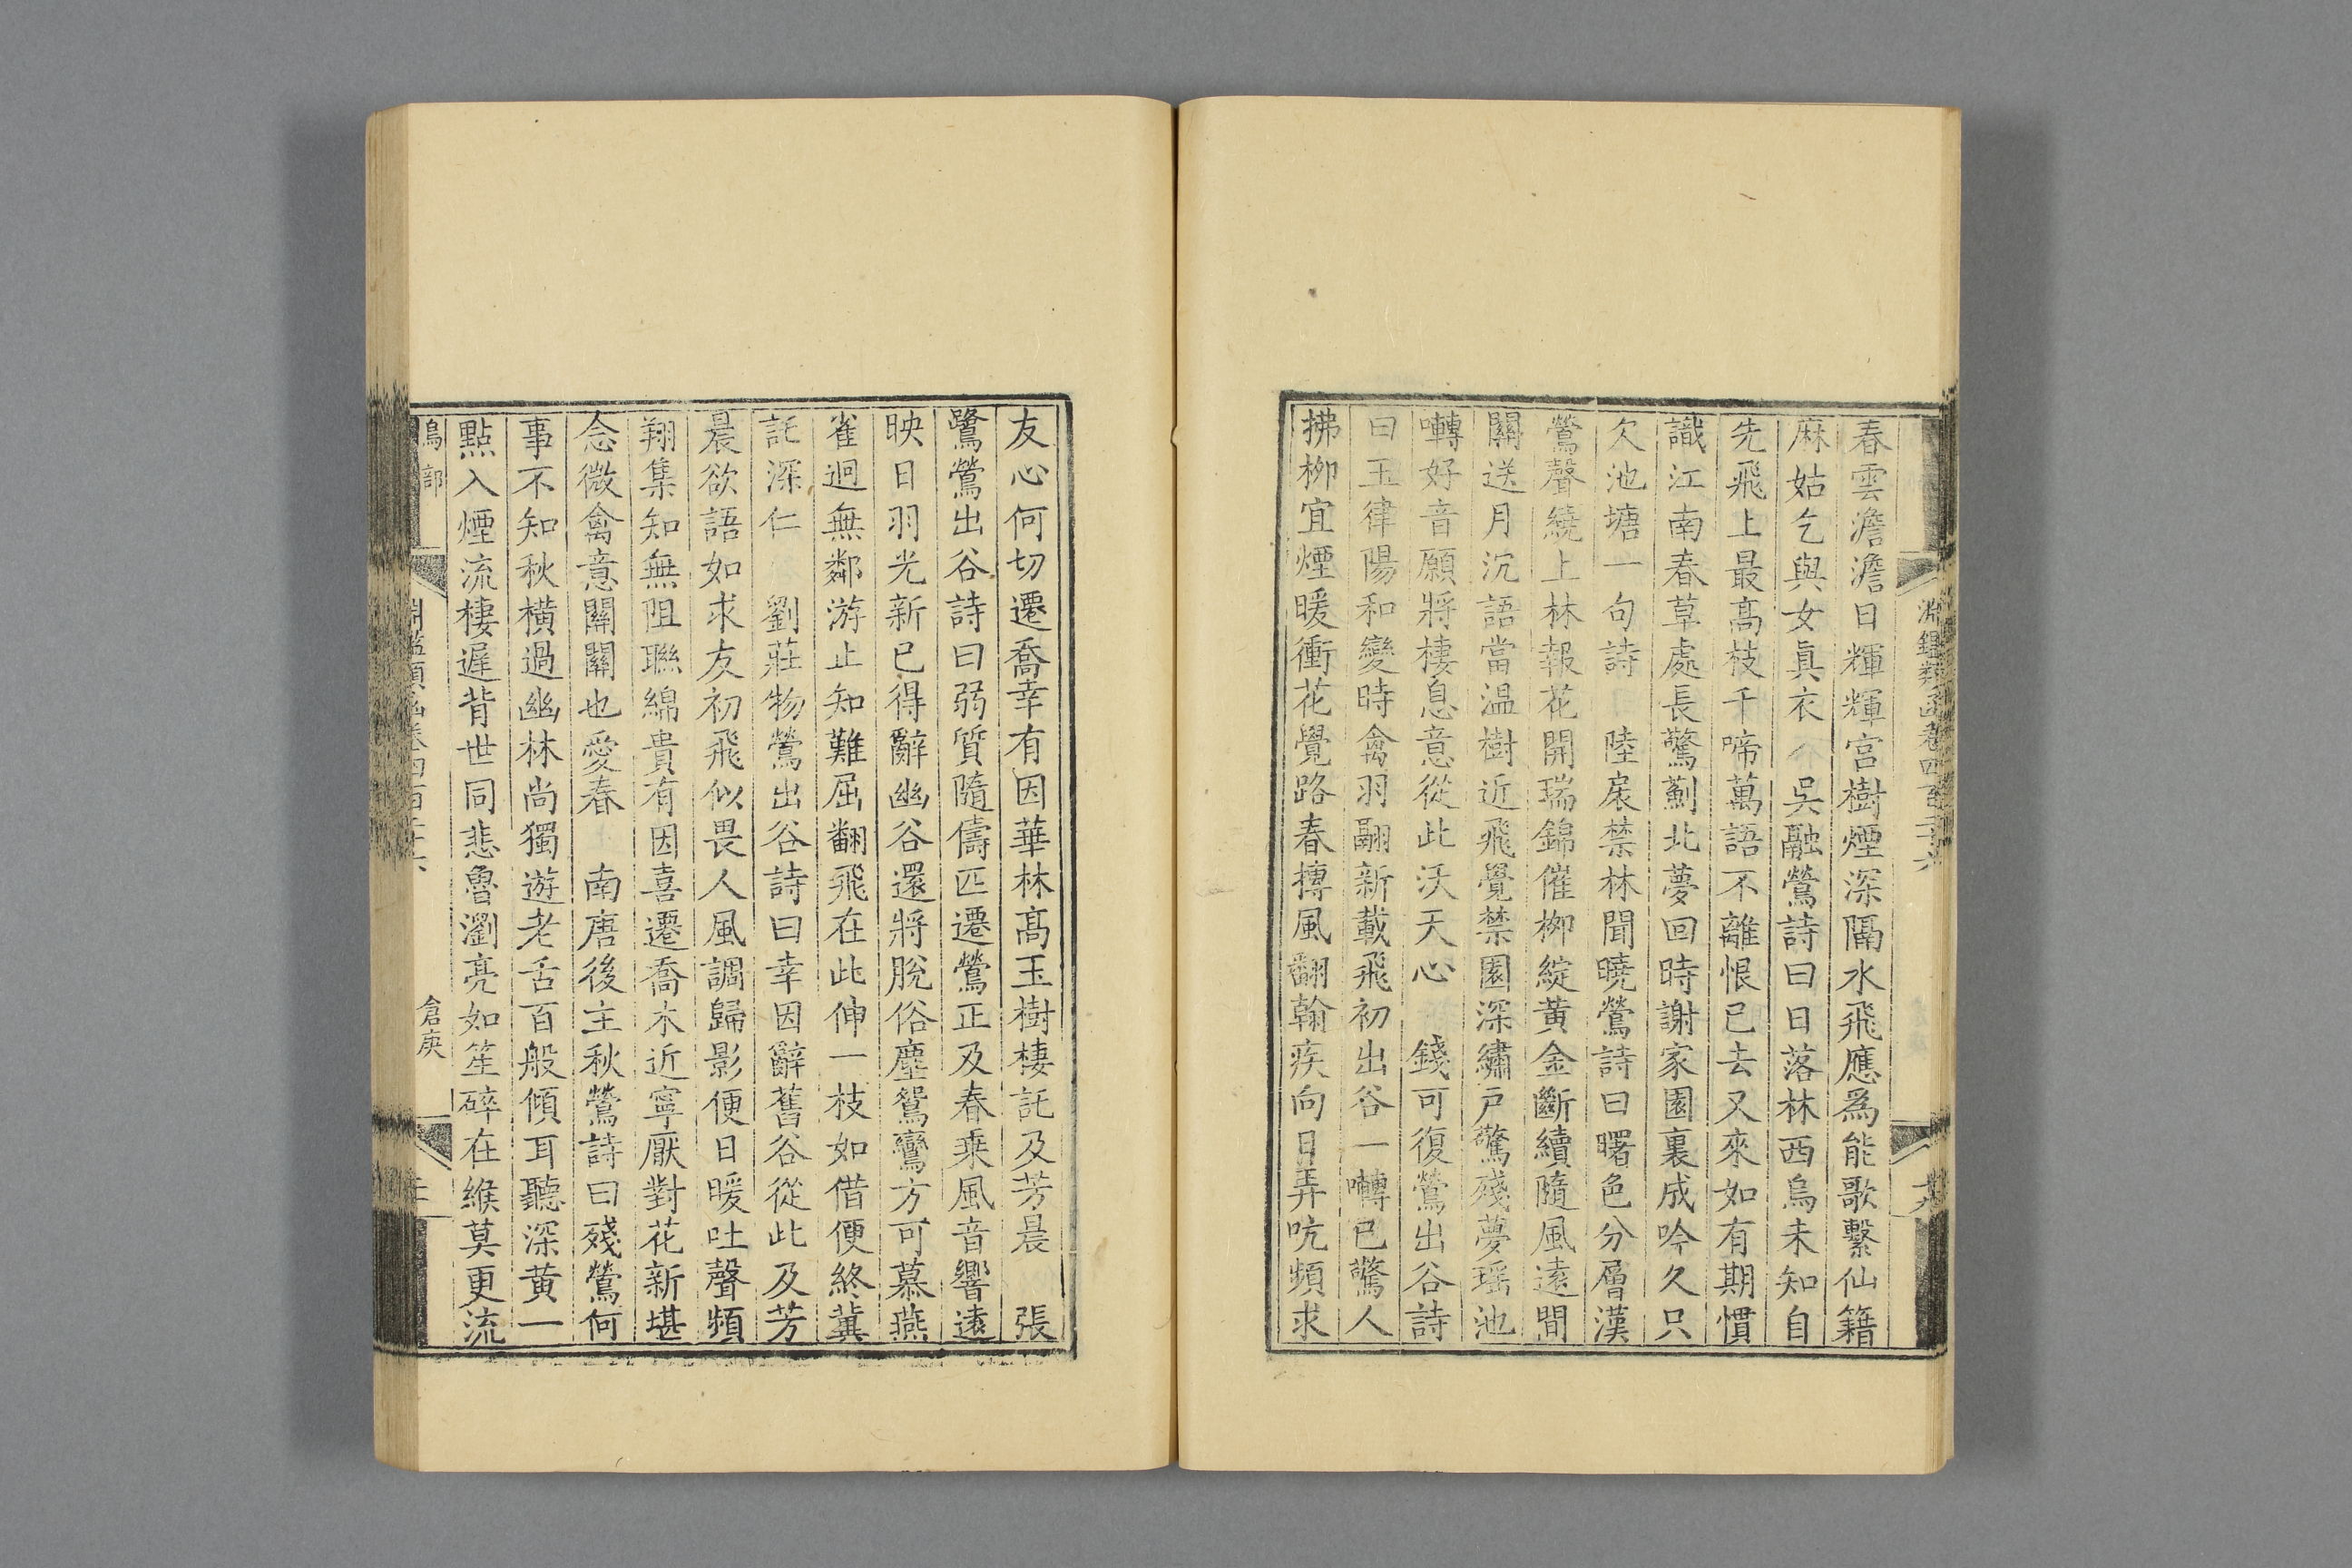 淵鑑類函卷四百二十六
十九
春雲澹澹日輝輝宮樹煙深隔水飛應爲能歌繫仙籍
麻姑乞與女眞衣　吳融鶯詩曰日落林西烏未知自
先飛上最高枝千啼萬語不離恨已去又來如有期慣
識江南春草處長驚薊北夢回時謝家園裏成吟久只
欠池塘一句詩　陸扆禁林聞曉鶯詩曰曙色分層漢
鶯聲繞上林報花開瑞錦催栁綻黃金斷續隨風遠間
關送月沉語當温樹近飛覺禁園深繡戶驚殘夢瑶池
囀好音願將棲息意從此沃天心　錢可復鶯出谷詩
曰玉律陽和變時禽羽翮新載飛初出谷一囀已驚人
拂栁宜煙暖衝花覺路春摶風翻翰疾向日弄吭頻求
友心何切遷喬幸有因華林高玉樹棲託及芳晨　張
鷺鶯出谷詩曰弱質隨儔匹遷鶯正及春乘風音響遠
映日羽光新已得辭幽谷還將脫俗塵鴛鸞方可慕燕
雀迥無鄰游止知難屈翻飛在此伸一枝如借便終冀
託深仁　劉莊物鶯出谷詩曰幸因辭舊谷從此及芳
晨欲語如求友初飛似畏人風調歸影便日暖吐聲頻
翔集知無阻聯綿貴有因喜遷喬木近寧厭對花新堪
念微禽意關關也愛春　南唐後主秋鶯詩曰殘鶯何
事不知秋橫過幽林尚獨遊老舌百般傾耳聽深黃一
點入煙流棲遲背世同悲魯瀏亮如笙碎在緱莫更流
鳥部
淵鑑類函卷四百二十六
倉庚